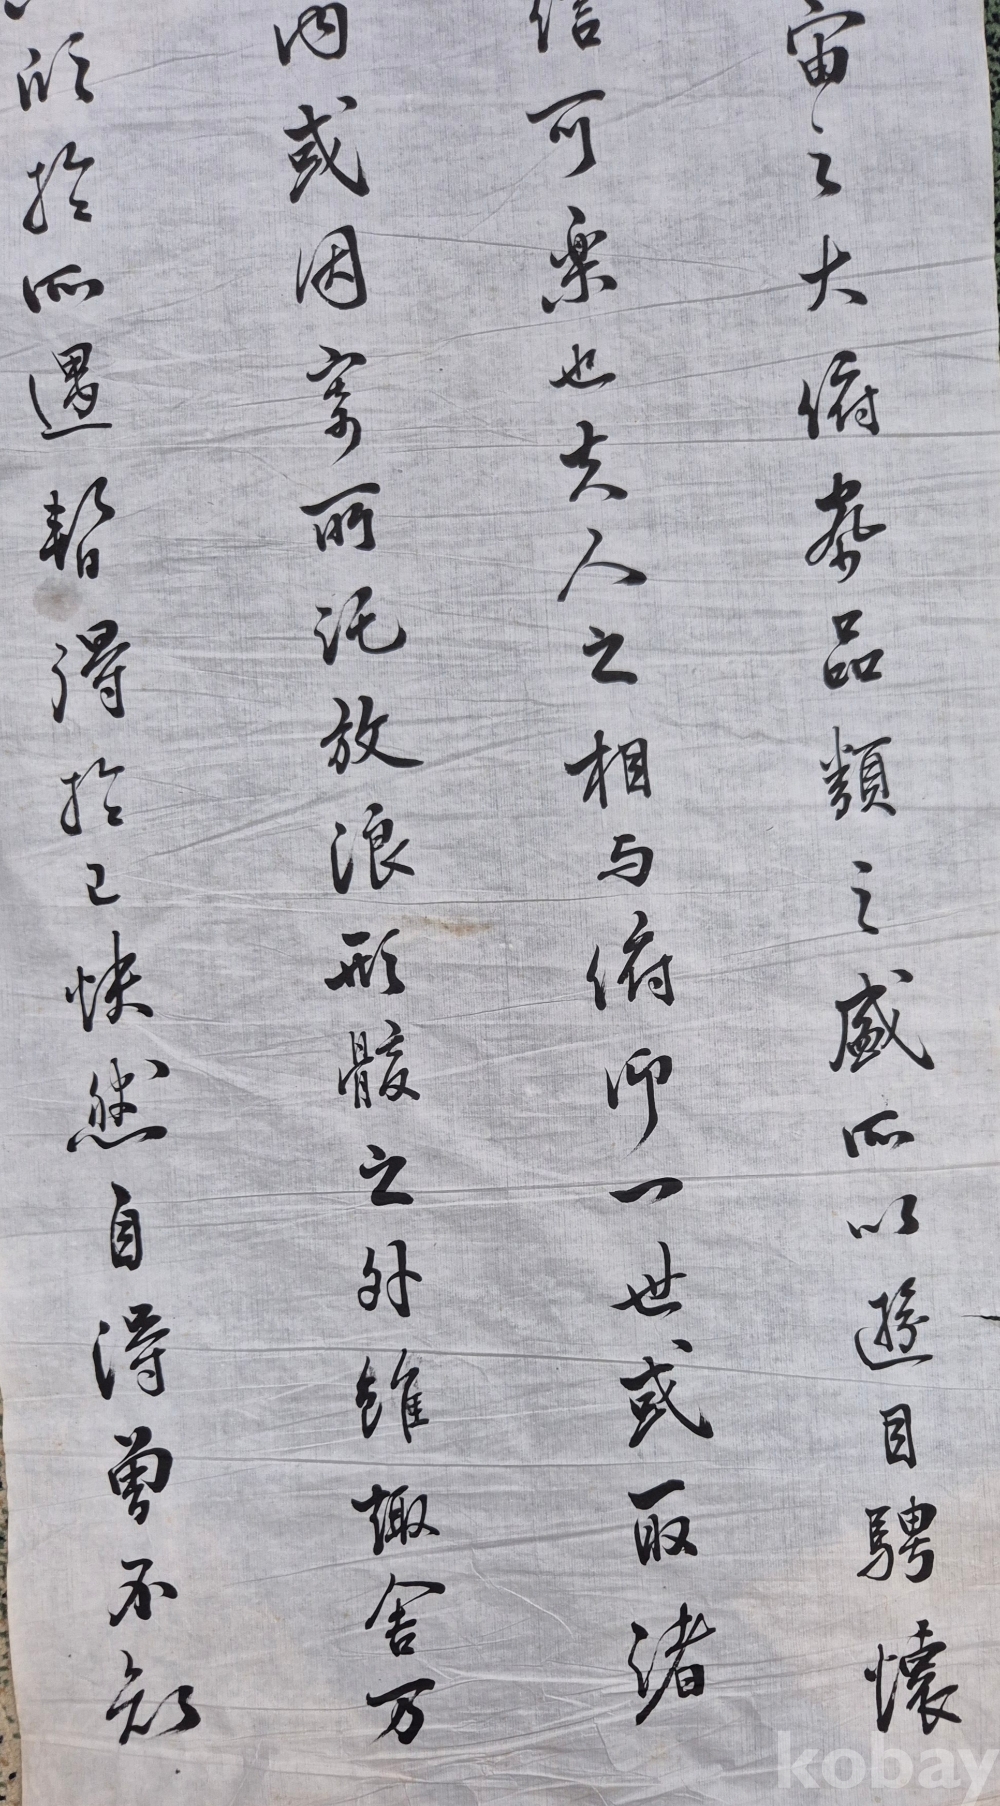 宙之大俯察品類之盛所以遊目騁懷
信可樂也夫人之相与俯仰一世或取諸
内或因寄所託放浪形骸之外雖趣舍万
欣於所遇暫得於己快然自得曾不知
kobay